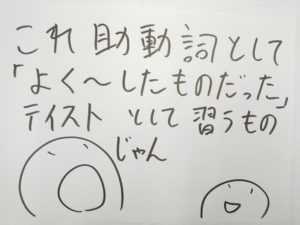 これ助動詞として
「よく～したものだった」
テイストとして習うもの
じゃん